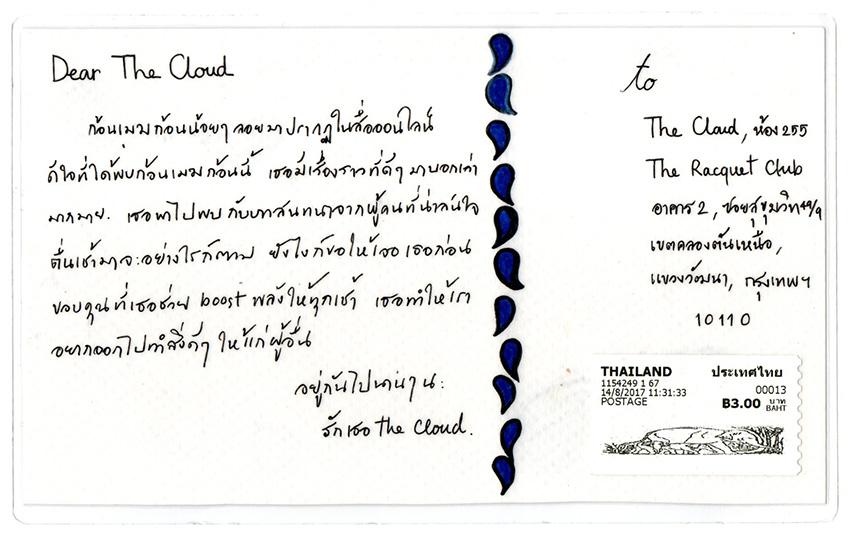 Dear The Cloud
ก้อนเมฆก้อนน้อยๆ ลอยมาปรากฏในสื่อออนไลน์
ดีใจที่ได้พบก้อนเมฆก้อนนี้ เธอมีเรื่องราวที่ดีๆ มาบอกเล่า
มากมาย. เธอพาไปพบกับบทสนทนาจากผู้คนที่น่าสนใจ
ตื่นเช้ามาจะอย่างไรก็ตาม ยังไงก็ขอให้เจอเธอก่อน
ขอบคุณที่เธอช่วย boost พลังให้ทุกเช้า เธอทำให้เรา
อยากออกไปทำสิ่งดีๆ ให้แก่ผู้อื่น
อยู่กันไปนานๆ นะ
รักเธอ the cloud.
to
The Cloud, ห้อง 255
The Racquet Club
อาคาร 2, ซอยสุขุมวิท 49/9
เขตคลองตันเหนือ,
แขวงวัฒนา, กรุงเทพฯ
10110
THAILAND ประเทศไทย
1154249 1 67 00013
14/8/2017 11:31:33
POSTAGE B3.00 บาท BAHT